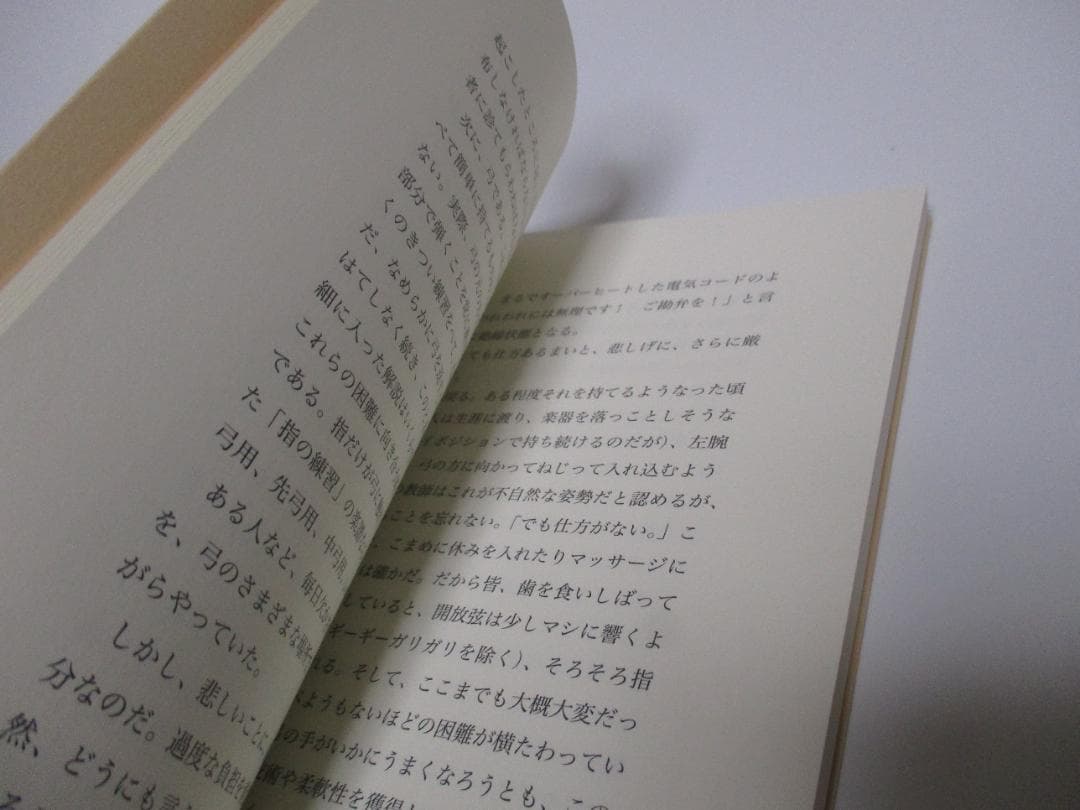 起こしたところ
布しなければなら
者に診てもらわね
次に、弓である。
べて簡単に持てるもの
ない。実際、弓の
部分で弾くことを
くのきつい練習を
だ、なめらかに弓を
はてしなく続き、この
細に入った解説は
これらの困難に向き合
である。指だけが弓に
た「指の練習」の楽譜
弓用、先弓用、中弓用、
ある人など、毎日欠か
を、弓のさまざまな場所
がらやっていた。
しかし、悲しいことに
分なのだ。過度な負担を
然、どうにも言
まるでオーバーヒートした電気コードのよ
われわれには無理です! ご勘弁を!」と言
絶縁状態となる。
ても仕方あるまいと、悲しげに、さらに厳
戻る。ある程度それを持てるようなった頃
人は生涯に渡り、楽器を落っことしそうな
イポジションで持ち続けるのだが)、左腕
弓の方に向かってねじって入れ込むよう
教師はこれが不自然な姿勢だと認めるが、
ことを忘れない。「でも仕方がない。」こ
、こまめに休みを入れたりマッサージに
は確かだ。だから皆、歯を食いしばって
していると、開放弦は少しマシに響くよ
ギーギーガリガリを除く)、そろそろ指
れる。そして、ここまでも大概大変だっ
ようもないほどの困難が横たわってい
の手がいかにうまくなろうとも、この
術や柔軟性を獲得